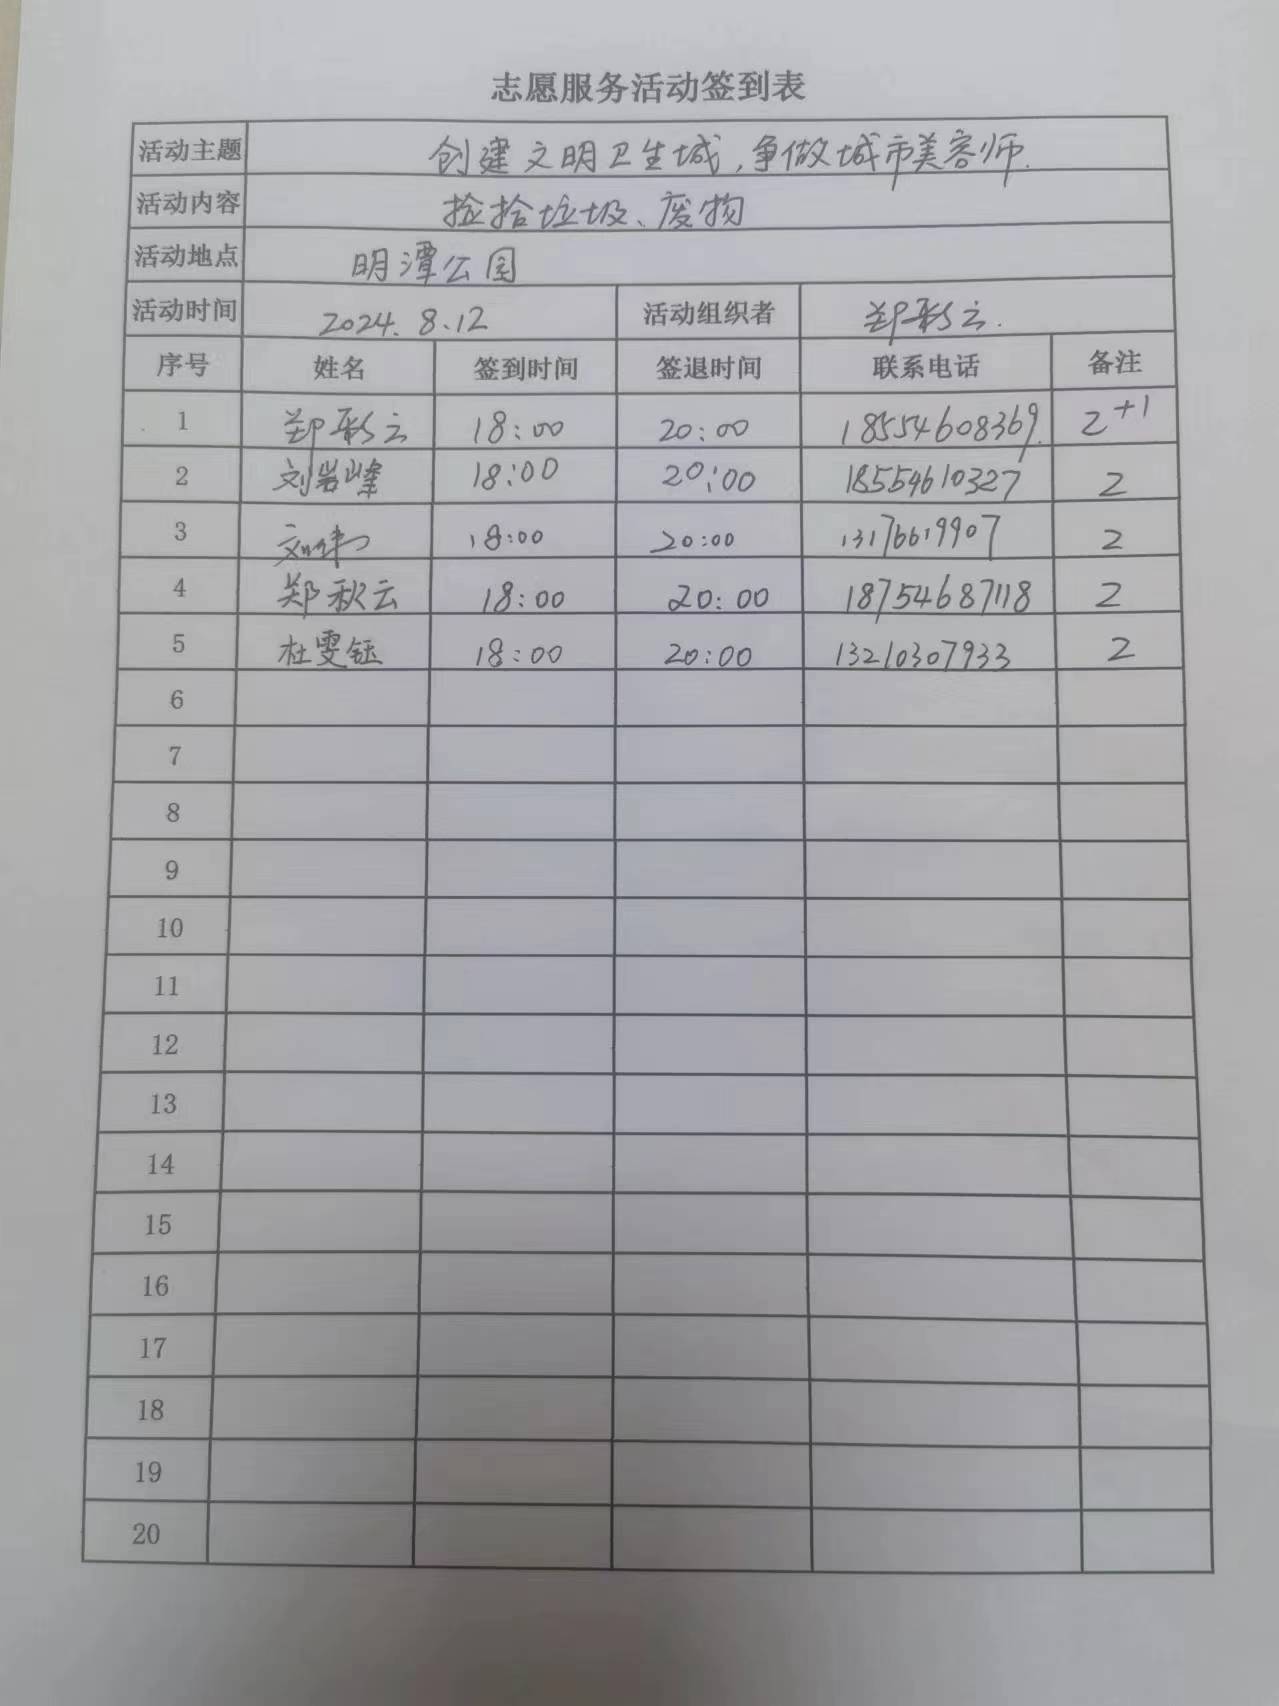 志愿服务活动签到表
活动主题 创建文明卫生城,争做城市美容师.
活动内容 捡拾垃圾、废物
活动地点 明潭公园
活动时间 2024.8.12 活动组织者 郑彩云.
序号 姓名 签到时间 签退时间 联系电话 备注
1 郑彩云 18:00 20:00 18554608369. 2+1
2 刘岩峰 18:00 20:00 18554610327 2
3 刘伟 18:00 20:00 13176619907 2
4 郑秋云 18:00 20:00 18754687118 2
5 杜雯钰 18:00 20:00 13210307933 2
6
7
8
9
10
11
12
13
14
15
16
17
18
19
20